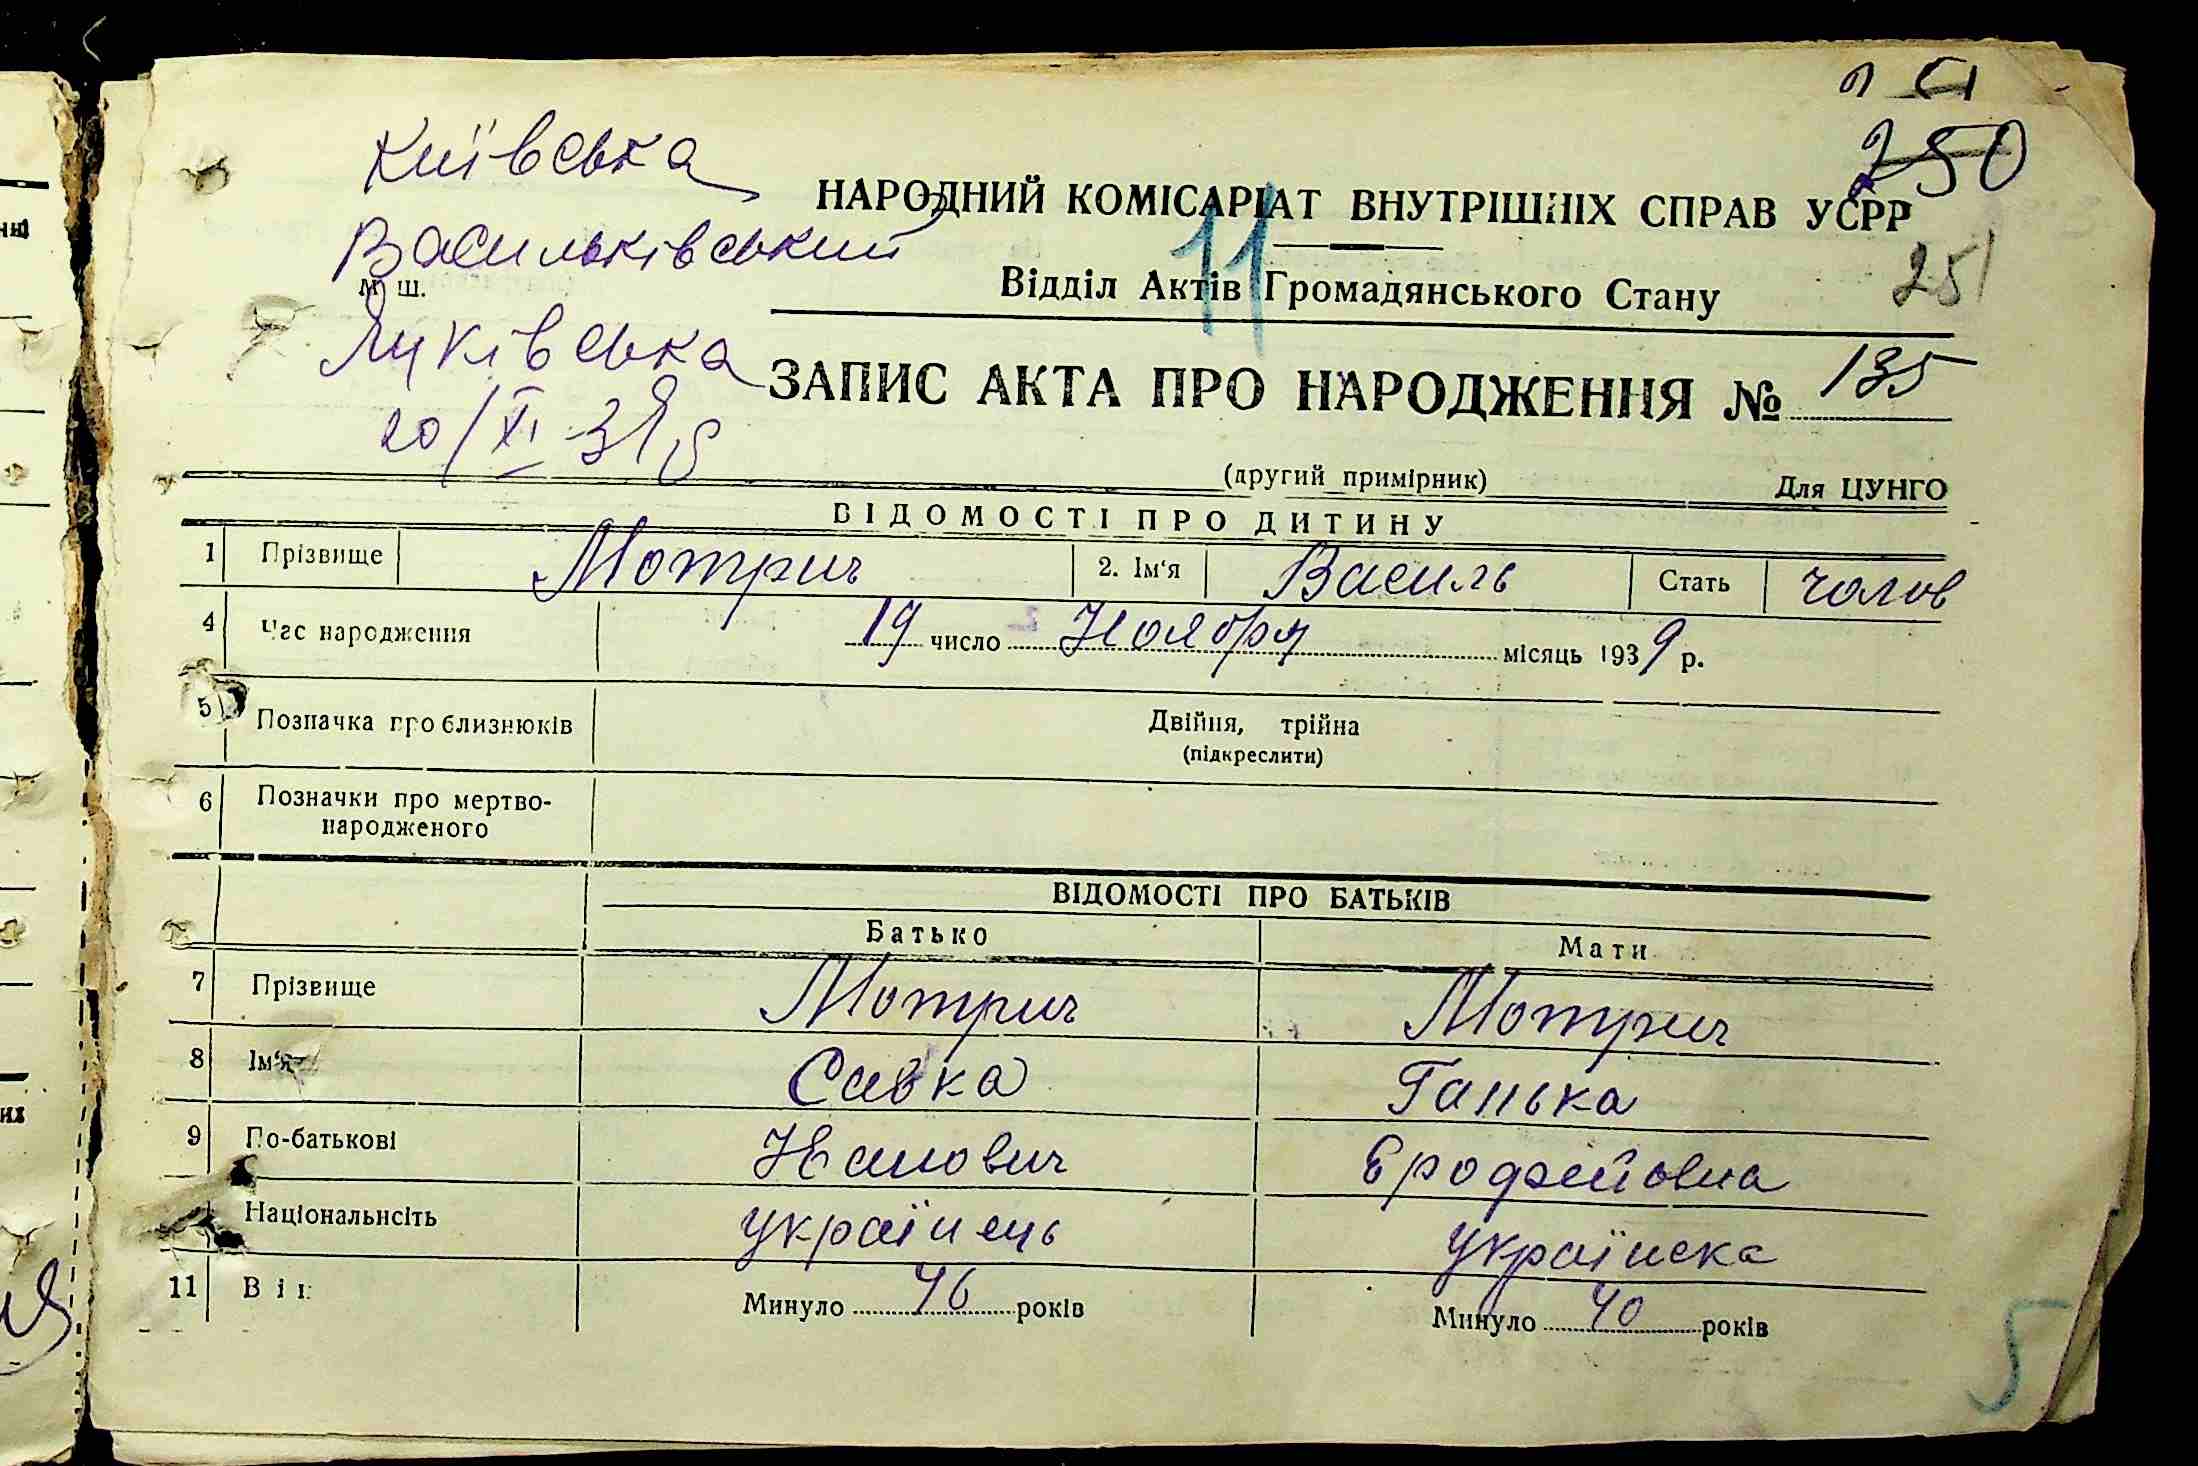 Київська
Васильківський
м ш.
Луківська
20/XI-39р
250
251
11
НАРОДНИЙ КОМІСАРІАТ ВНУТРІШНІХ СПРАВ УСРР
Відділ Актів Громадянського Стану
ЗАПИС АКТА ПРО НАРОДЖЕННЯ № 135
(другий примірник) Для ЦУНГО
ВІДОМОСТІ ПРО ДИТИНУ
1 Прізвище Мотрич 2. Ім'я Василь Стать чолов
4 Час народження 19 число Ноября місяць 1939 р.
5 Позначка про близнюків Двійня, трійна
(підкреслити)
6 Позначки про мертво-
народженого
ВІДОМОСТІ ПРО БАТЬКІВ
Батько Мати
7 Прізвище Мотрич Мотрич
8 Ім'я Савка Ганька
9 По-батькові Іванович Ерофейовна
Національність українець українска
11 Вік Минуло 46 років Минуло 40 років
5